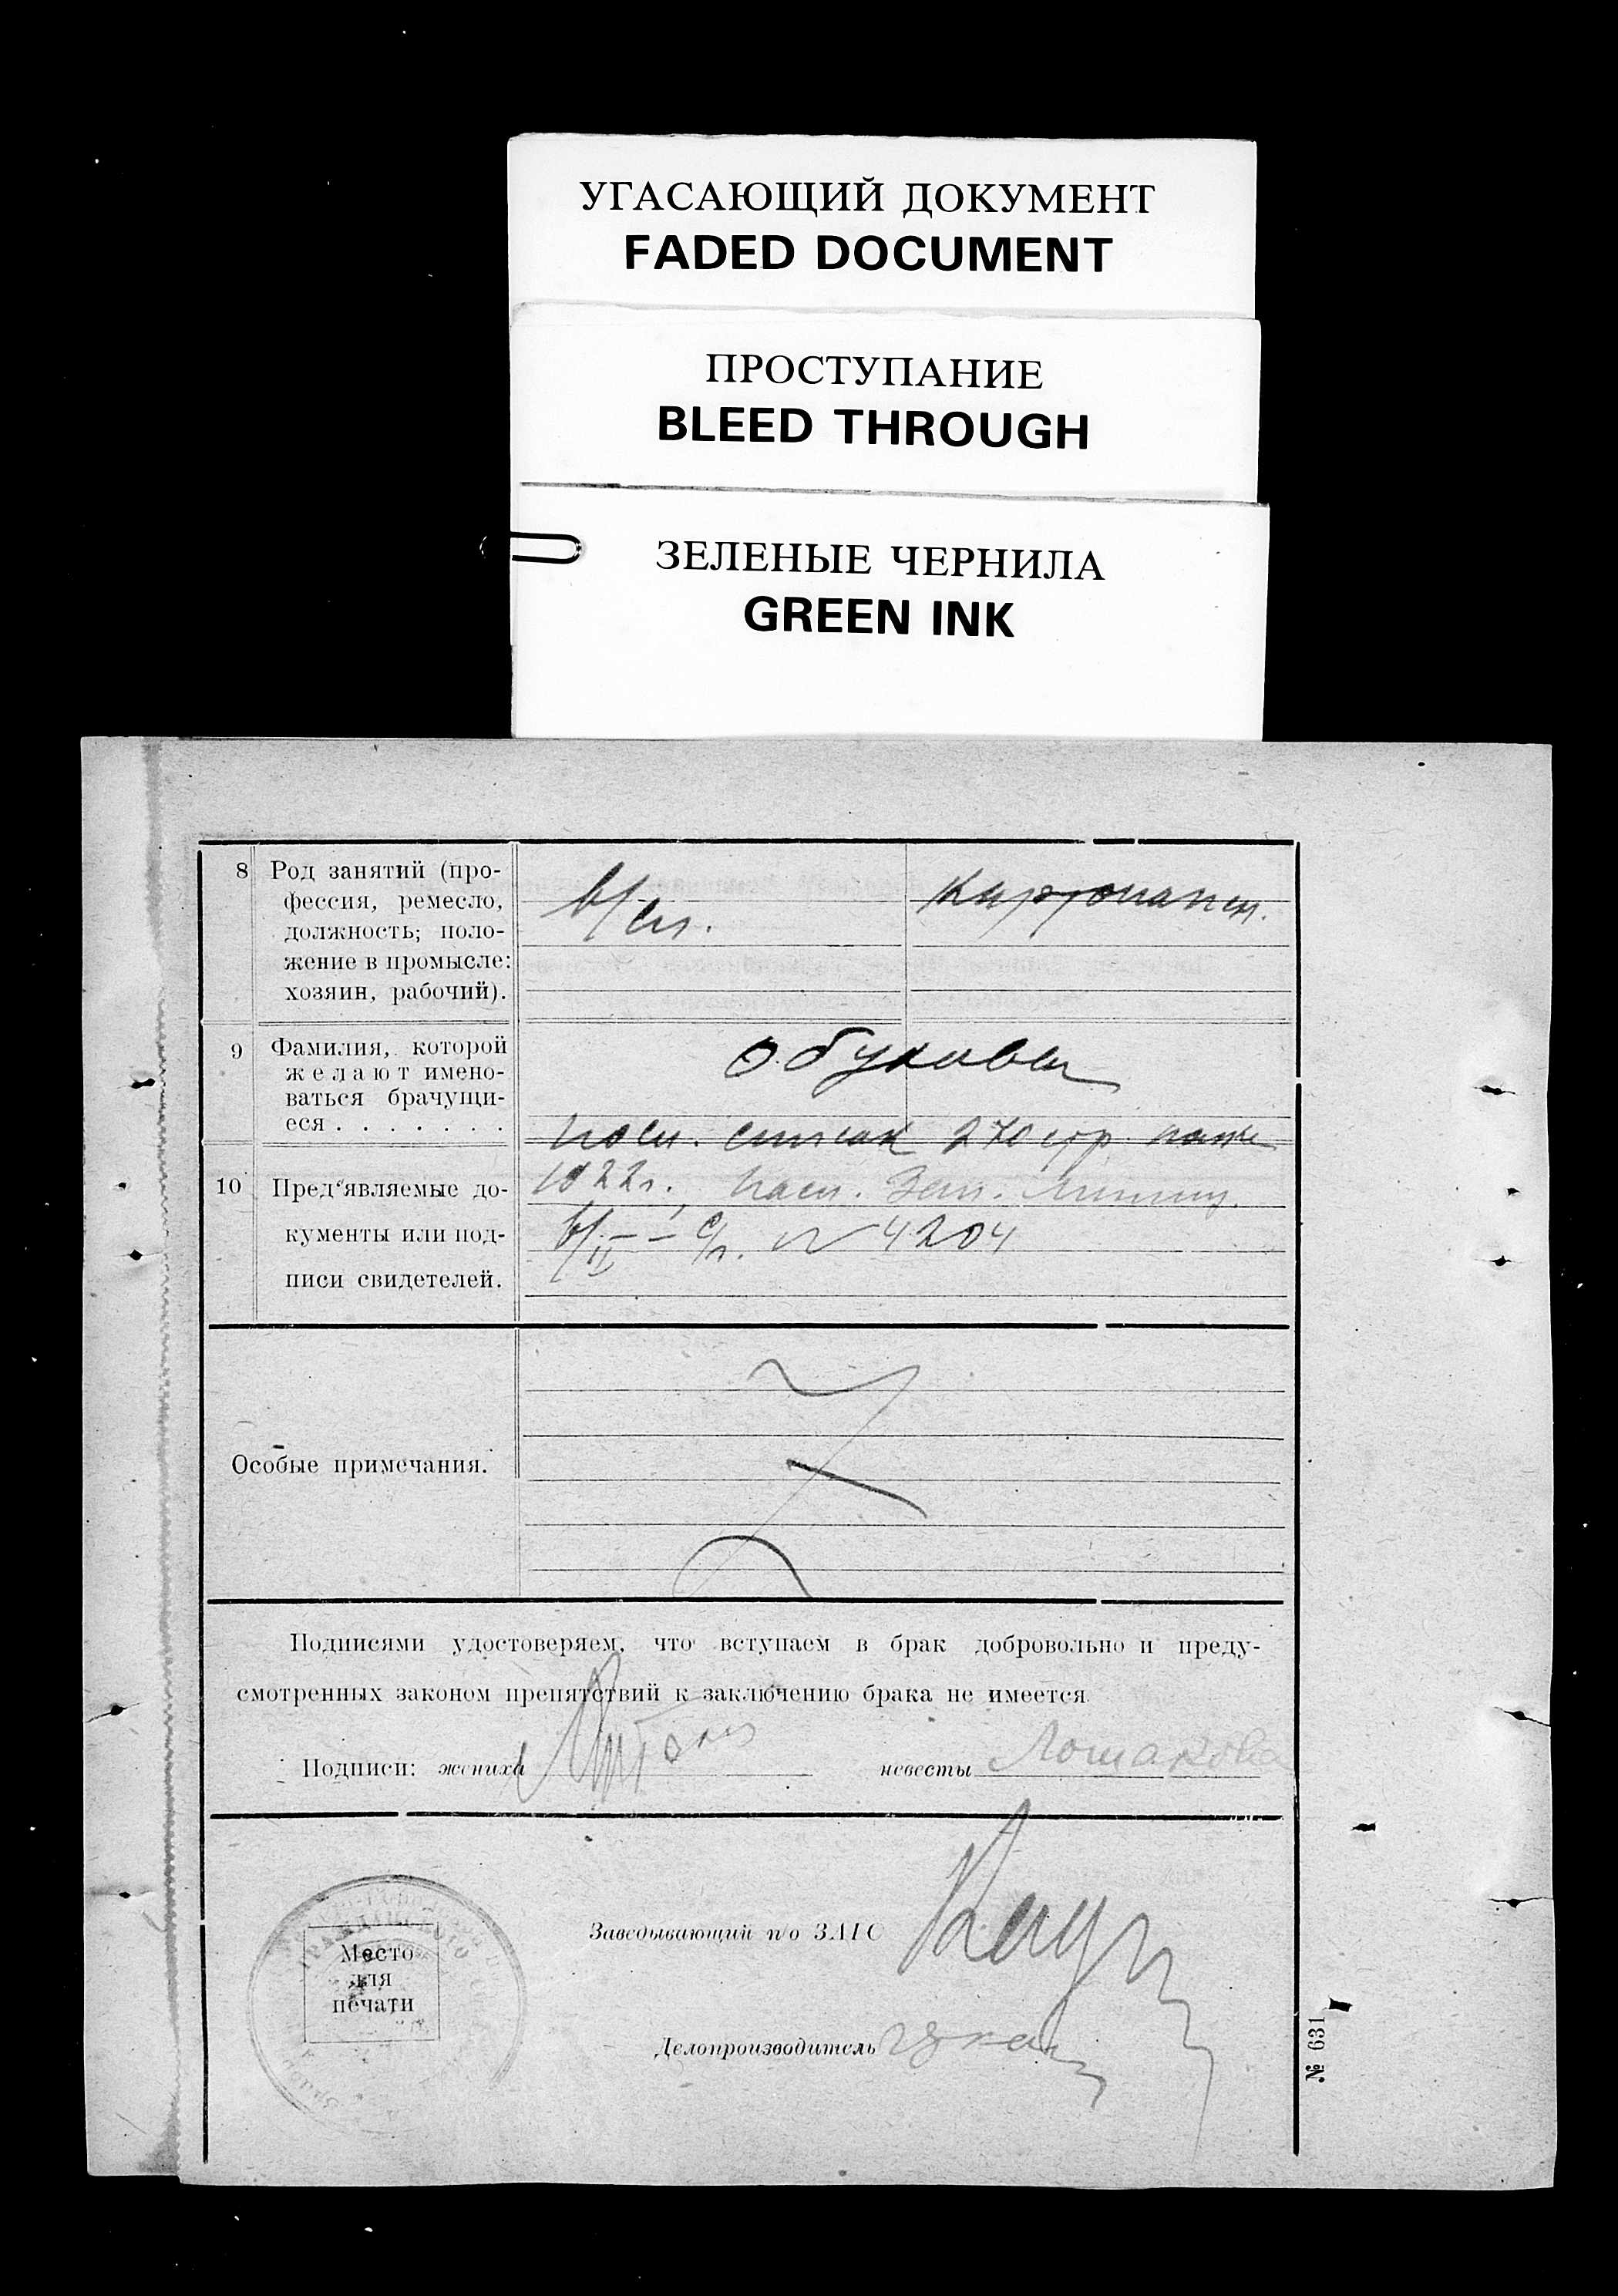 УГАСАЮЩИЙ ДОКУМЕНТ
FADED DOCUMENT
ПРОСТУПАНИЕ
BLEED THROUGH
ЗЕЛЕНЫЕ ЧЕРНИЛА
GREEN INK
8 Род занятий (про-
фессия, ремесло,
должность; поло-
жение в промысле:
хозяин, рабочий).
в/сл.
9 Фамилия, которой
желают имено-
ваться брачущи-
еся . . . . . . .
Обуховы
список 270 стр.
1922 г.,
10 Пред'являемые до-
кументы или под-
писи свидетелей.
№ 4204
Особые примечания.
Подписями удостоверяем, что вступаем в брак добровольно и преду-
смотренных законом препятствий к заключению брака не имеется.
Подписи: жениха
невесты Лошакова
Заведывающий п/о ЗАГС
Место
для
печати
Делопроизводитель
№ 631